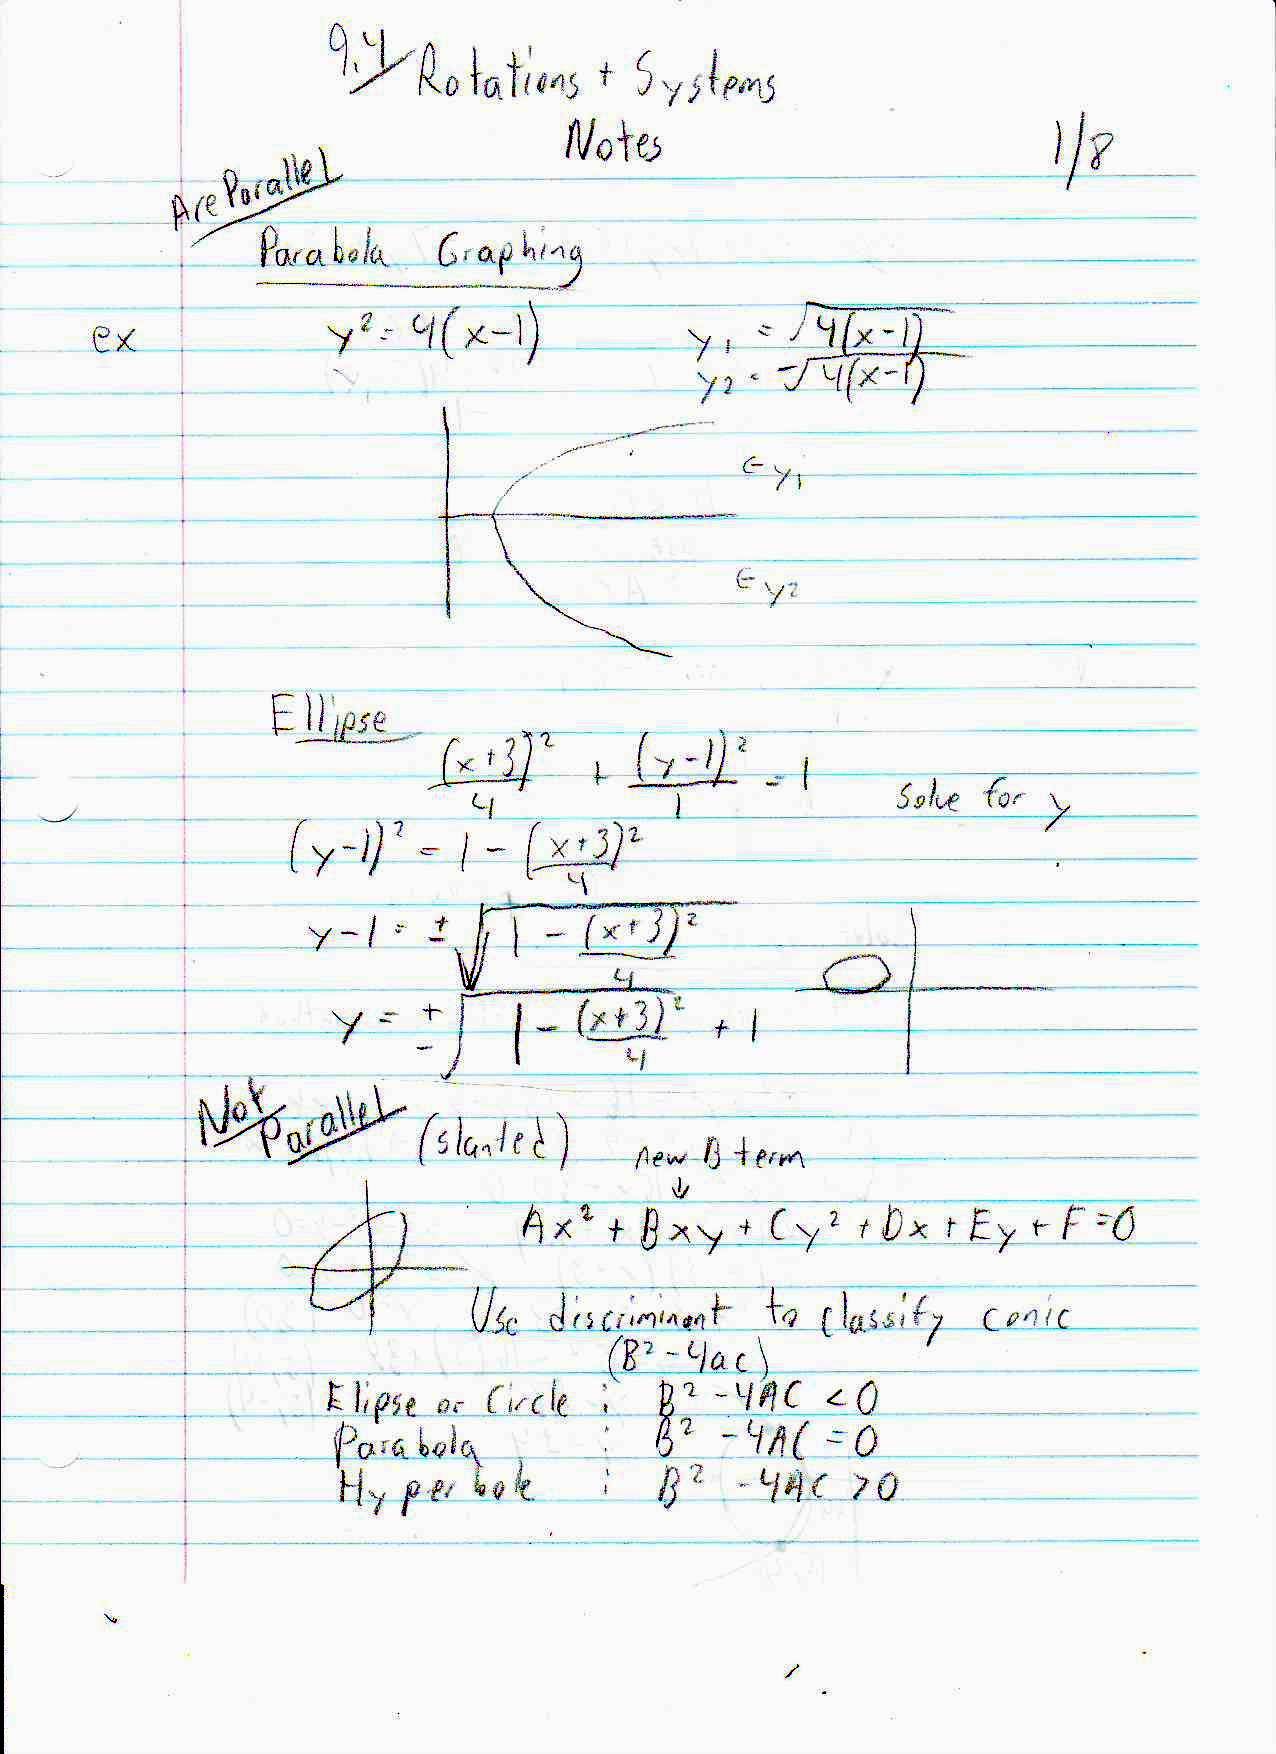 9.4 Rotations + Systems
Notes
1/8
Are Parallel
Parabola Graphing
ex y² = 4(x-1) y₁ = √4(x-1)
y₂ = -√4(x-1)
← y₁
← y₂
Ellipse
(x+3)²/4 + (y-1)²/1 = 1 solve for y
(y-1)² = 1 - (x+3)²/4
y-1 = ± √1 - (x+3)²/4
y = ± √1 - (x+3)²/4 + 1
Not Parallel (slanted)
new B term
↓
Ax² + Bxy + Cy² + Dx + Ey + F = 0
Use discriminant to classify conic
(B² - 4ac)
Elipse or Circle : B² - 4AC < 0
Parabola : B² - 4AC = 0
Hyperbole : B² - 4AC > 0